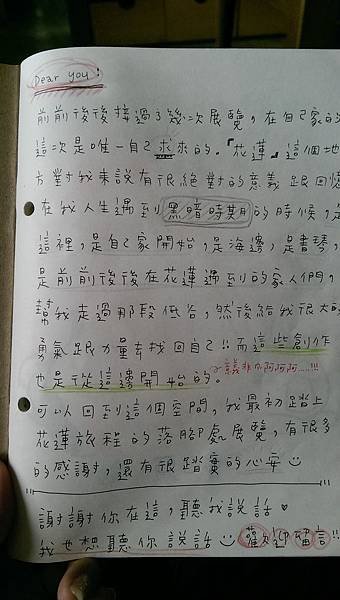 Dear you :
前前後後接過了幾次展覽，在自己家的
這次是唯一自己求來的。「花蓮」這個地
方對我來說有很絕對的意義跟回憶
在我人生遇到黑暗時期的時候，是
這裡，是自己家開始，是海邊，是書琴，
是前前後後在花蓮遇到的家人們，
幫我走過那段低谷，然後給我很大的
勇氣跟力量去找回自己!!而這些創作
也是從這邊開始的。意義非凡阿阿阿......!!!
可以回到這個空間，我最初踏上
花蓮旅程的落腳處展覽，有很多
的感謝，還有很踏實的心安
謝謝你在這，聽我說話♥
我也想聽你說話 歡迎留言!!